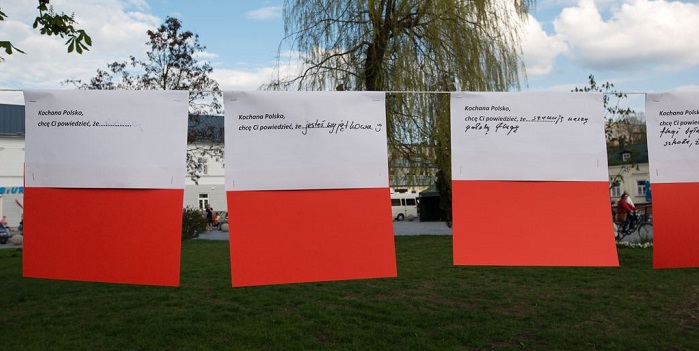 Kochana Polsko,
chcę Ci powiedzieć, że
Kochana Polsko,
chcę Ci powiedzieć, że jesteś wyjątkowa j
Kochana Polsko,
chcę Ci powiedzieć, że szanuję naszą
polską flagę
Kochana Pols
chcę Ci powie
flagi
szkole,
BIUR